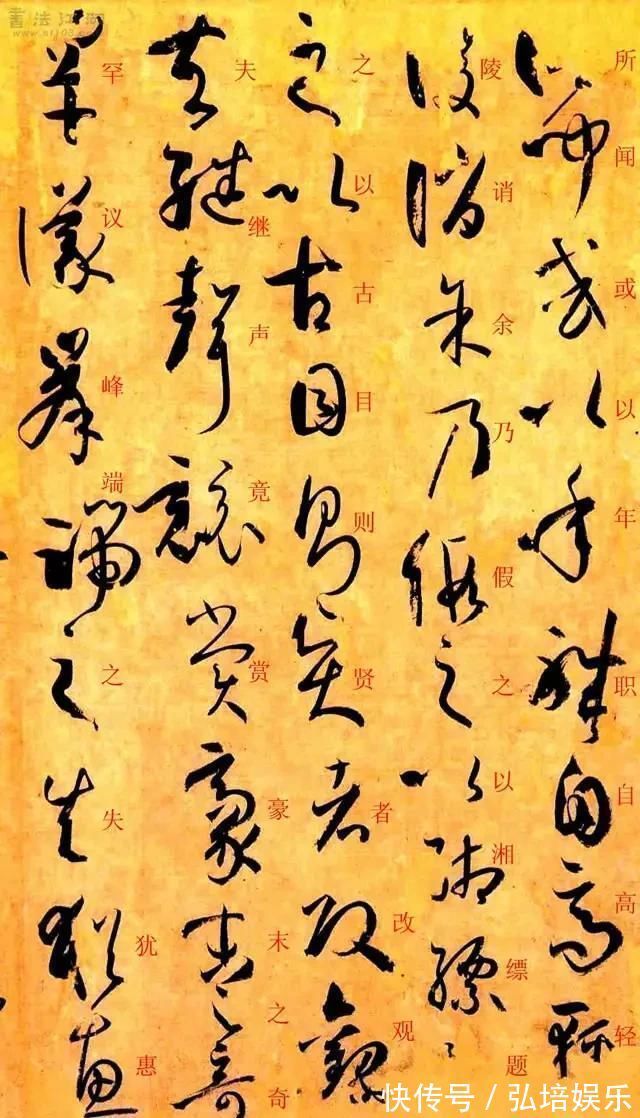 所闻或以年职自高轻
陵诮余乃假之以湘缥题
之以古目则贤者改观
夫继声竞赏豪末之奇
罕议峰端之失犹惠
书法江湖
快传号 / 弘培娱乐